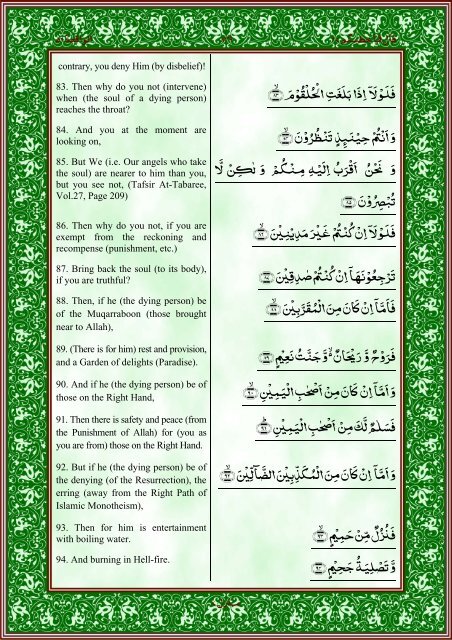 contrary, you deny Him (by disbelief)!
83. Then why do you not (intervene)
when (the soul of a dying person)
reaches the throat?
84. And you at the moment are
looking on,
85. But We (i.e. Our angels who take
the soul) are nearer to him than you,
but you see not, (Tafsir At-Tabaree,
Vol.27, Page 209)
86. Then why do you not, if you are
exempt from the reckoning and
recompense (punishment, etc.)
87. Bring back the soul (to its body),
if you are truthful?
88. Then, if he (the dying person) be
of the Muqarraboon (those brought
near to Allah),
89. (There is for him) rest and provision,
and a Garden of delights (Paradise).
90. And if he (the dying person) be of
those on the Right Hand,
91. Then there is safety and peace (from
the Punishment of Allah) for (you as
you are from) those on the Right Hand.
92. But if he (the dying person) be of
the denying (of the Resurrection), the
erring (away from the Right Path of
Islamic Monotheism),
93. Then for him is entertainment
with boiling water.
94. And burning in Hell-fire.
فَلَوْلَآ اِذَا بَلَغَتِ الْحُلْقُوْمَ ۙ﴿۸۳﴾
وَاَنْتُمْ حِيْنَىِٕذٍ تَنْظُرُوْنَ ۙ﴿۸۴﴾
وَ نَحْنُ اَقْرَبُ اِلَيْهِ مِنْكُمْ وَ لٰكِنْ لَّا
تُبْصِرُوْنَ ﴿۸۵﴾
فَلَوْلَآ اِنْ كُنْتُمْ غَيْرَ مَدِيْنِيْنَ ۙ﴿۸۶﴾
تَرْجِعُوْنَهَآ اِنْ كُنْتُمْ صٰدِقِيْنَ ﴿۸۷﴾
فَاَمَّآ اِنْ كَانَ مِنَ الْمُقَرَّبِيْنَ ۙ﴿۸۸﴾
فَرَوْحٌ وَّ رَيْحَانٌ ۙ۬ وَّ جَنَّتُ نَعِيْمٍ ﴿۸۹﴾
وَ اَمَّآ اِنْ كَانَ مِنْ اَصْحٰبِ الْيَمِيْنِ ۙ﴿۹۰﴾
فَسَلٰمٌ لَّكَ مِنْ اَصْحٰبِ الْيَمِيْنِ ؕ﴿۹۱﴾
وَ اَمَّآ اِنْ كَانَ مِنَ الْمُكَذِّبِيْنَ الضَّآلِّيْنَ ۙ﴿۹۲﴾
فَنُزُلٌ مِّنْ حَمِيْمٍ ۙ﴿۹۳﴾
وَّ تَصْلِيَةُ جَحِيْمٍ ﴿۹۴﴾